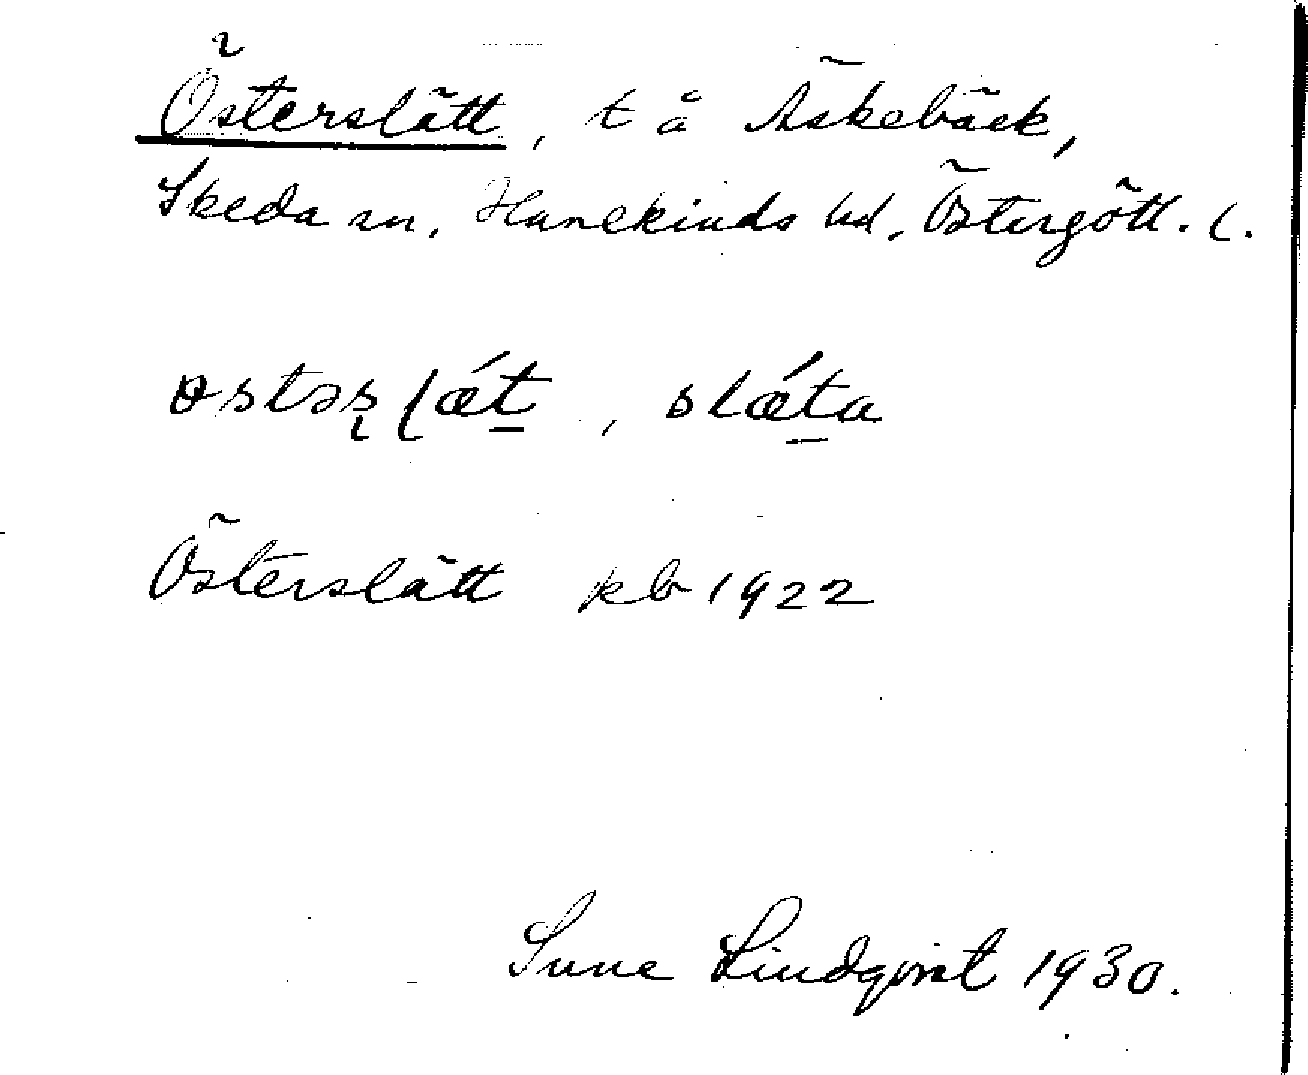 Österslätt, t å Äskebäck,
Skeda sn, Hanekinds hd, Östergötl. l.
østəʂɭǽt̲, slǽt̲a
Österslätt kb 1922
Sune Lindqvist 1930.